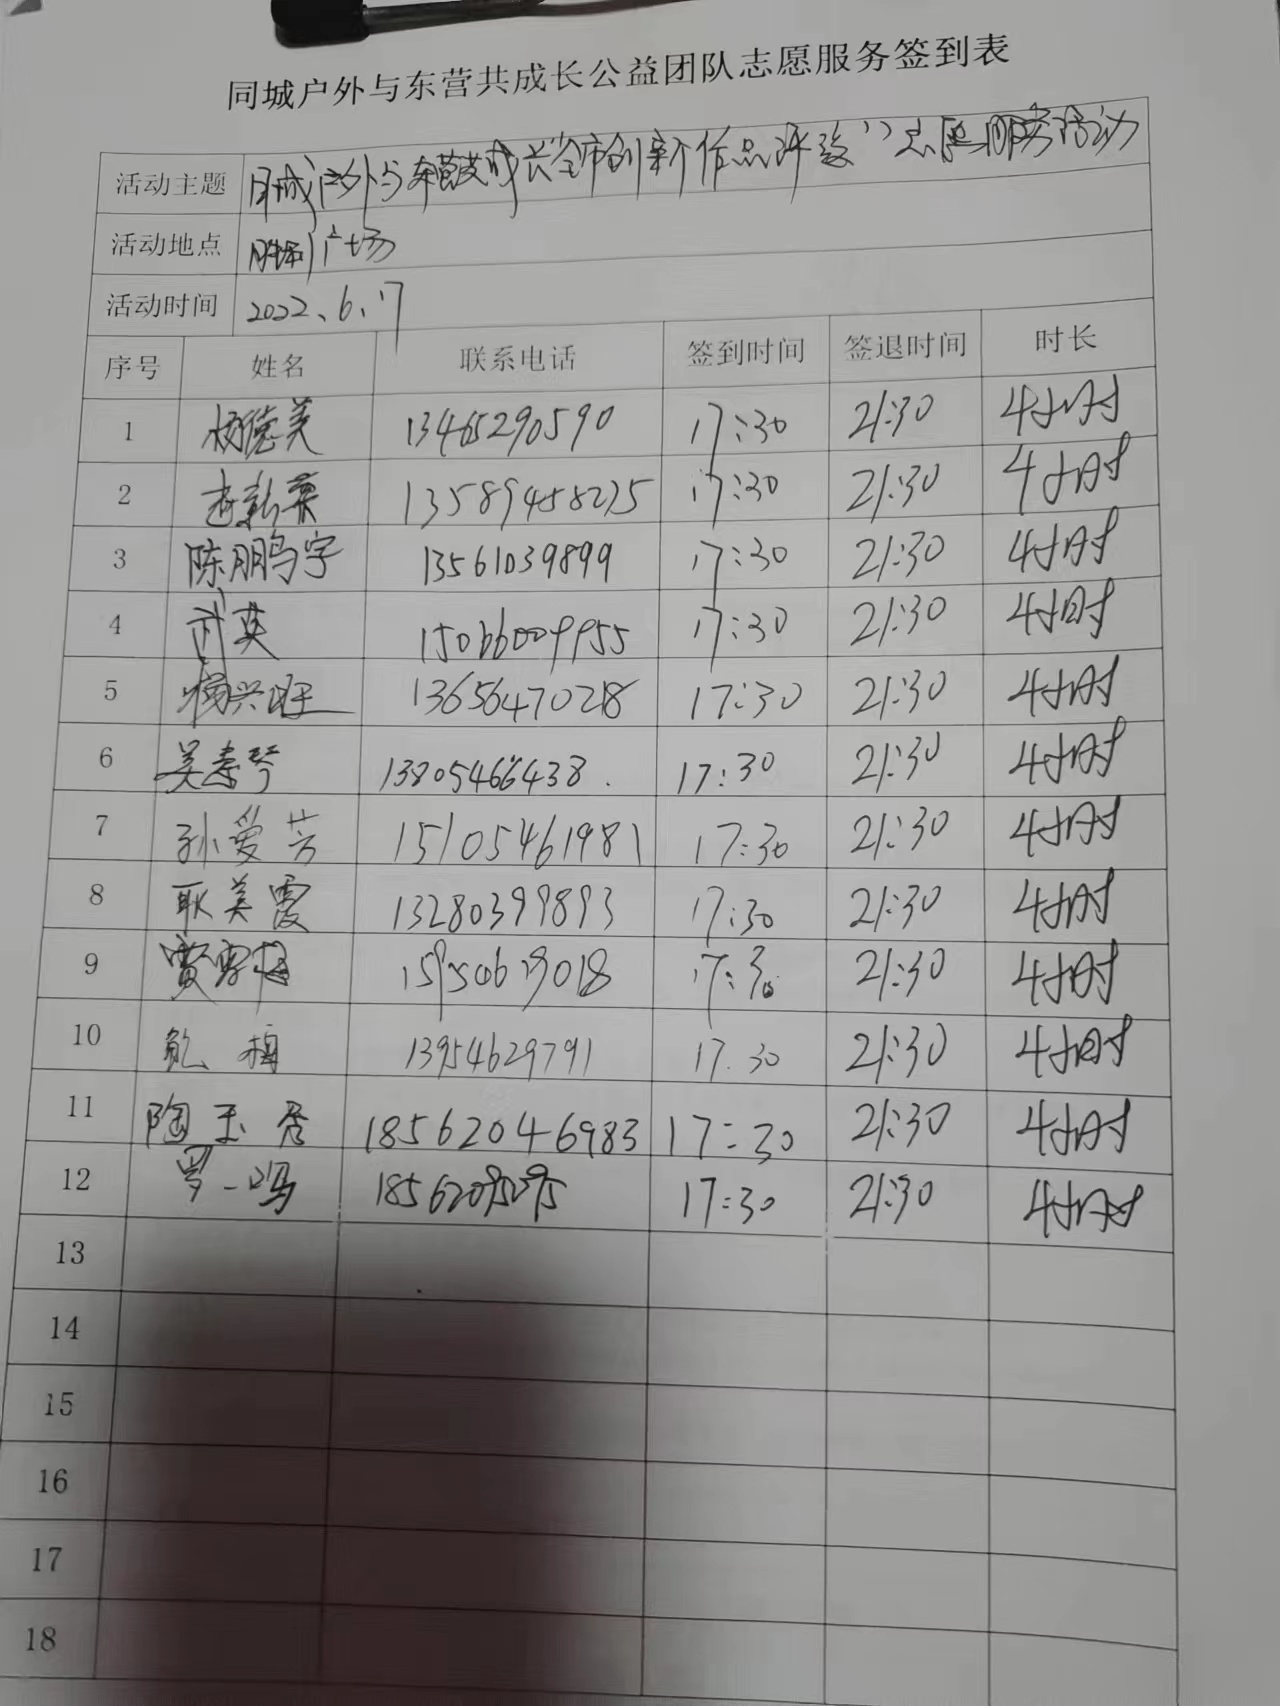 同城户外与东营共成长公益团队志愿服务签到表
活动主题 同城户外与东营共成长"全市创新作品评鉴"志愿服务活动
活动地点 胜利广场
活动时间 2022、6、17
序号 姓名 联系电话 签到时间 签退时间 时长
1 杨德美 13465290590 17:30 21:30 4小时
2 13589458275 17:30 21:30 4小时
3 陈鹏宇 13561039899 17:30 21:30 4小时
4 武英 15066009955 17:30 21:30 4小时
5 杨兴旺 13656470218 17:30 21:30 4小时
6 吴寿琴 13805466438. 17:30 21:30 4小时
7 孙爱芳 15105461981 17:30 21:30 4小时
8 耿美霞 13280399893 17:30 21:30 4小时
9 贾雪梅 17:30 21:30 4小时
10 鲍梅 13954629791 17.30 21:30 4小时
11 陶玉秀 18562046983 17:30 21:30 4小时
12 罗一鸣 18562095295 17:30 21:30 4小时
13
14
15
16
17
18